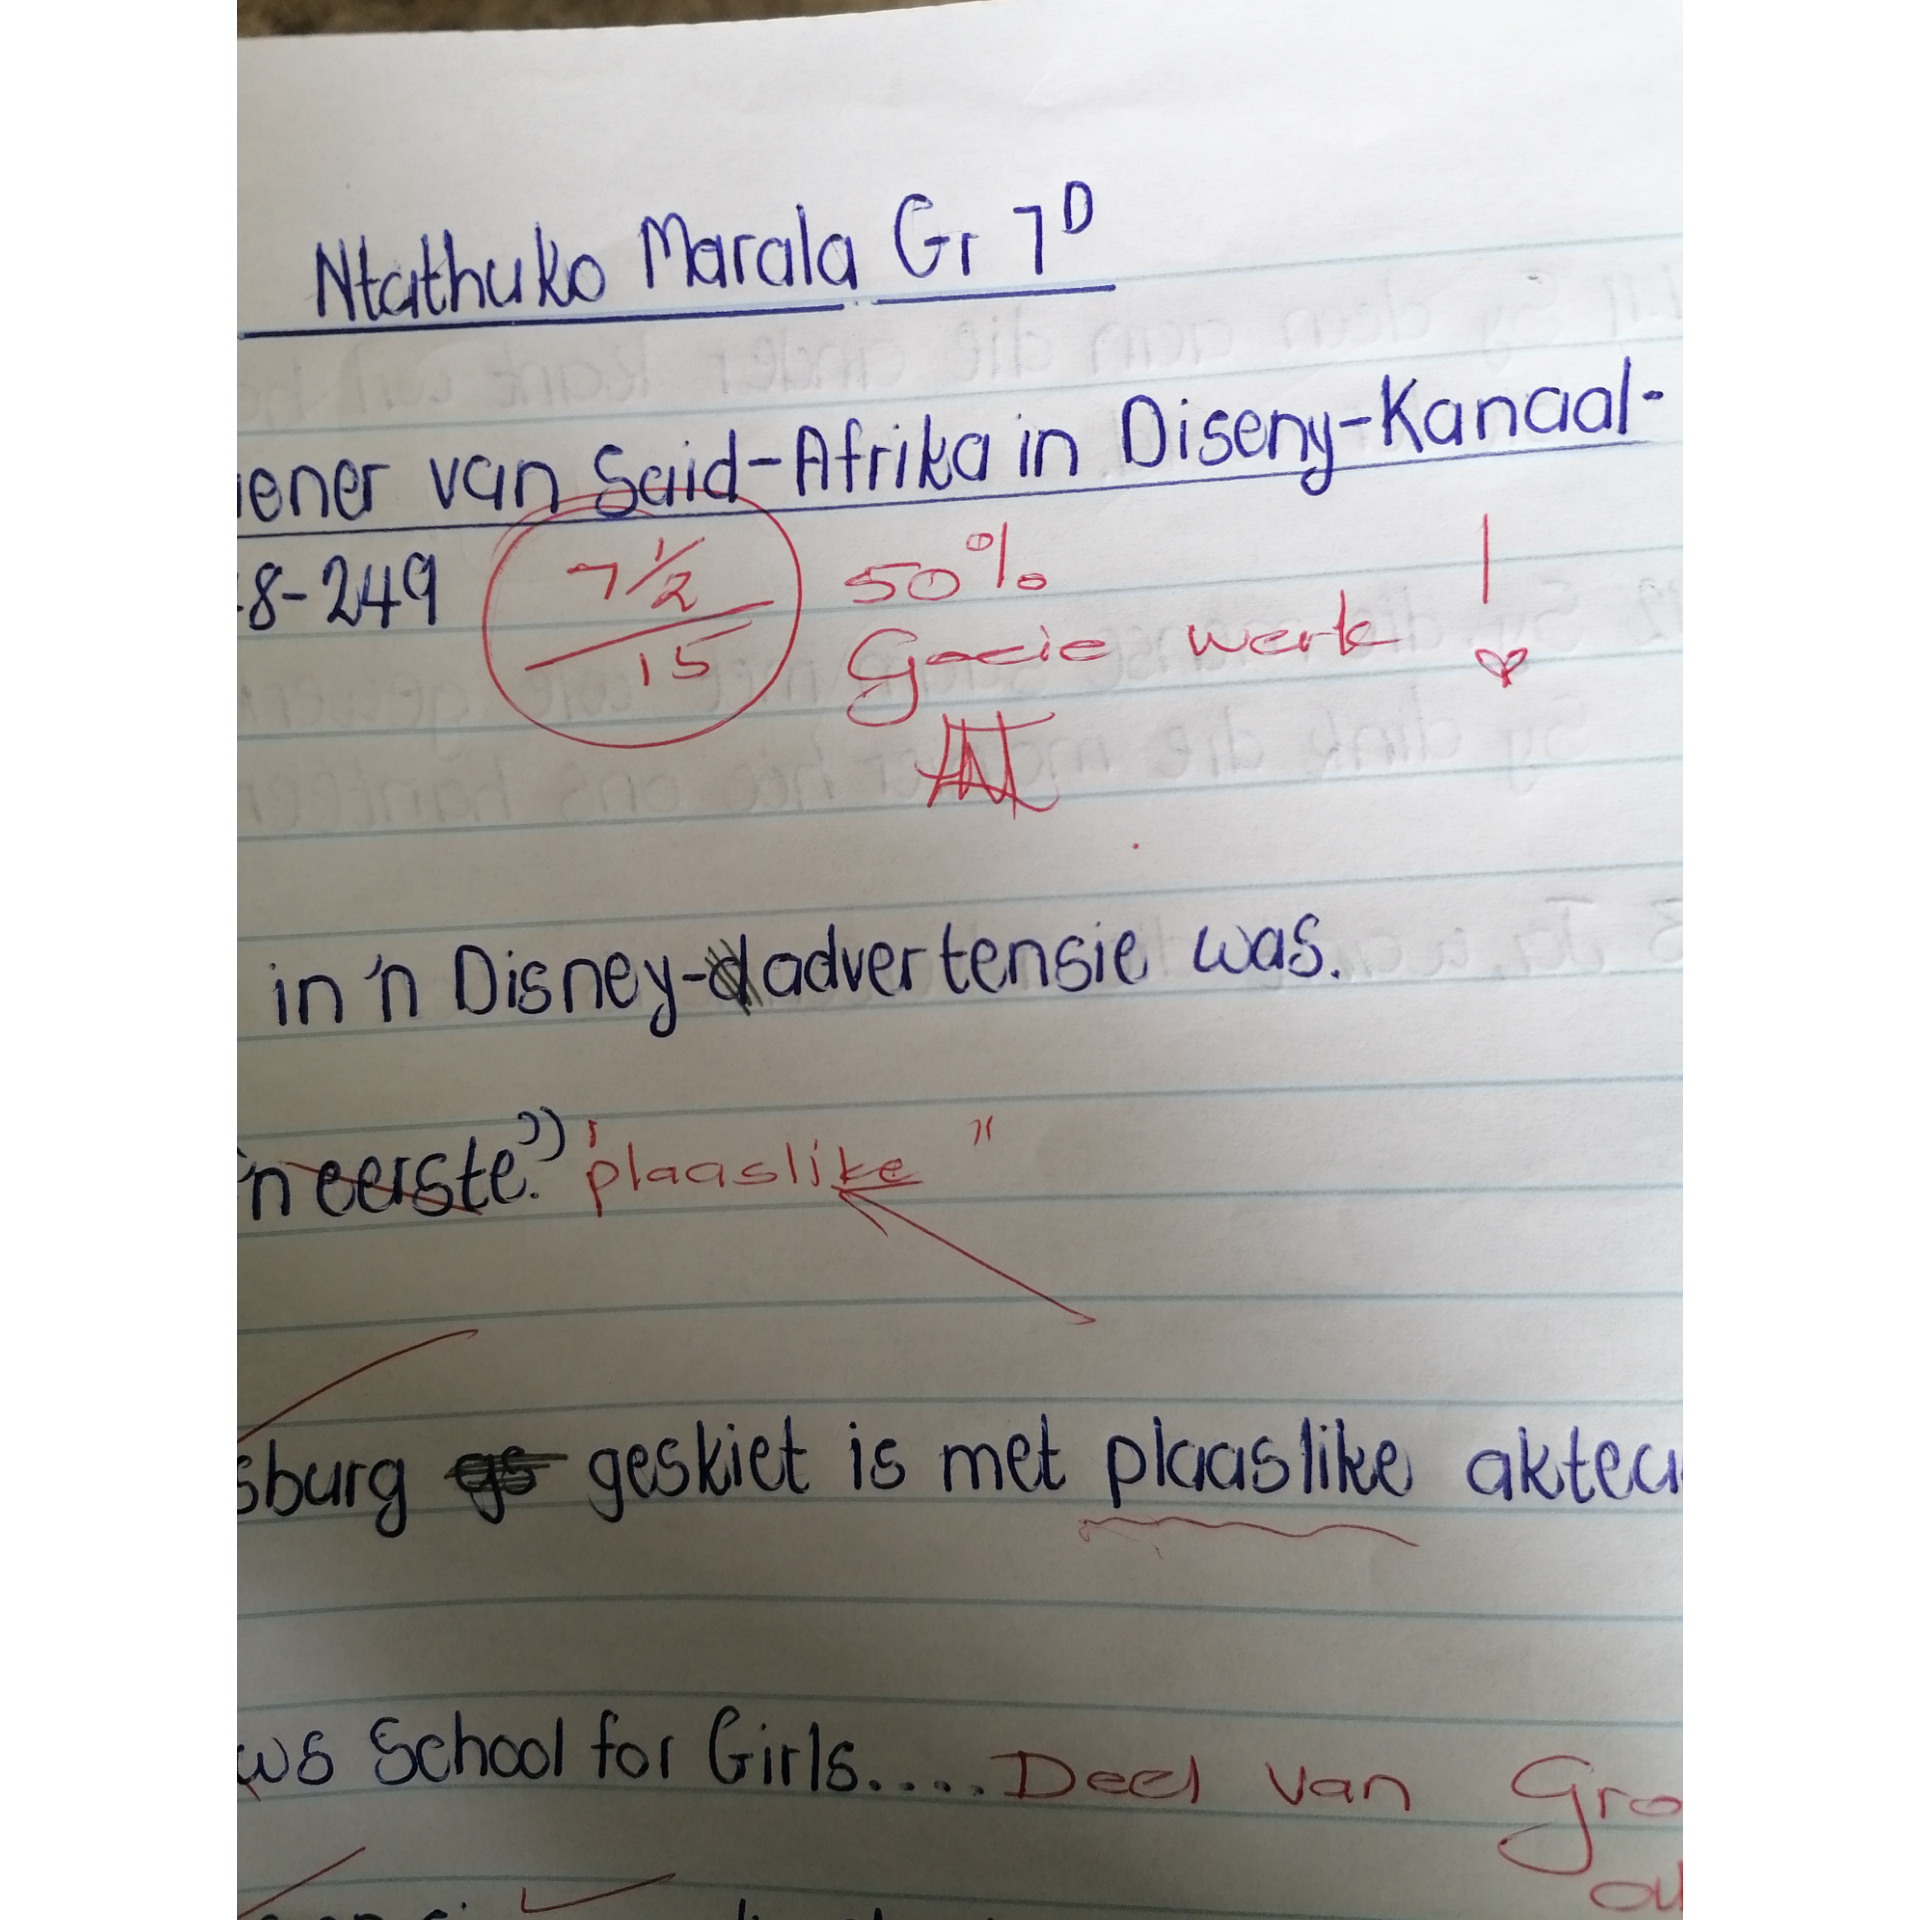 Ntathuko Marala Gr 7D
iener van Said-Afrika in Diseny-Kanaal-
8-249
7 1/2
15
50%
Goeie werk !
in 'n Disney-advertensie was.
'n eerste." "plaaslike"
sburg geskiet is met plaaslike akteu
ws School for Girls..... Deel van Gro